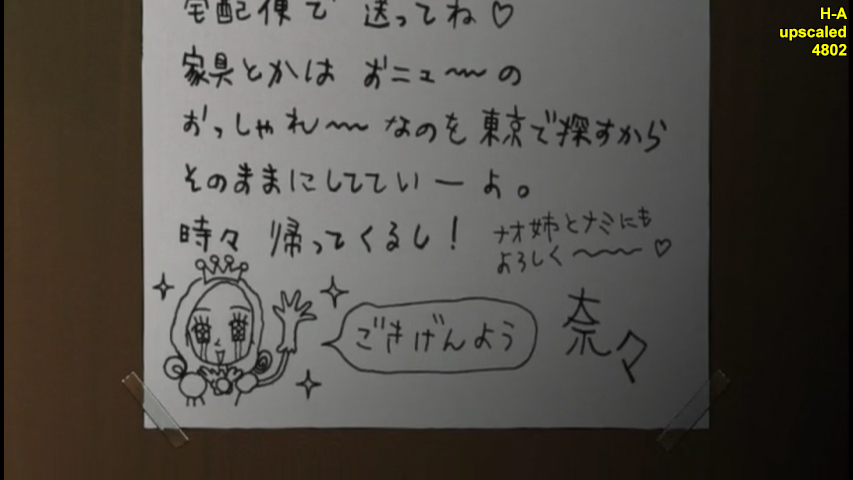 宅配便で 送ってね♡
家具とかは おニュ〜〜の
おっしゃれ〜〜なのを東京で探すから
そのままにしてていーよ。
時々 帰ってくるし!
ナオ姉とナミにも
よろしく〜〜〜♡
ごきげんよう
奈々
H-A
upscaled
4802